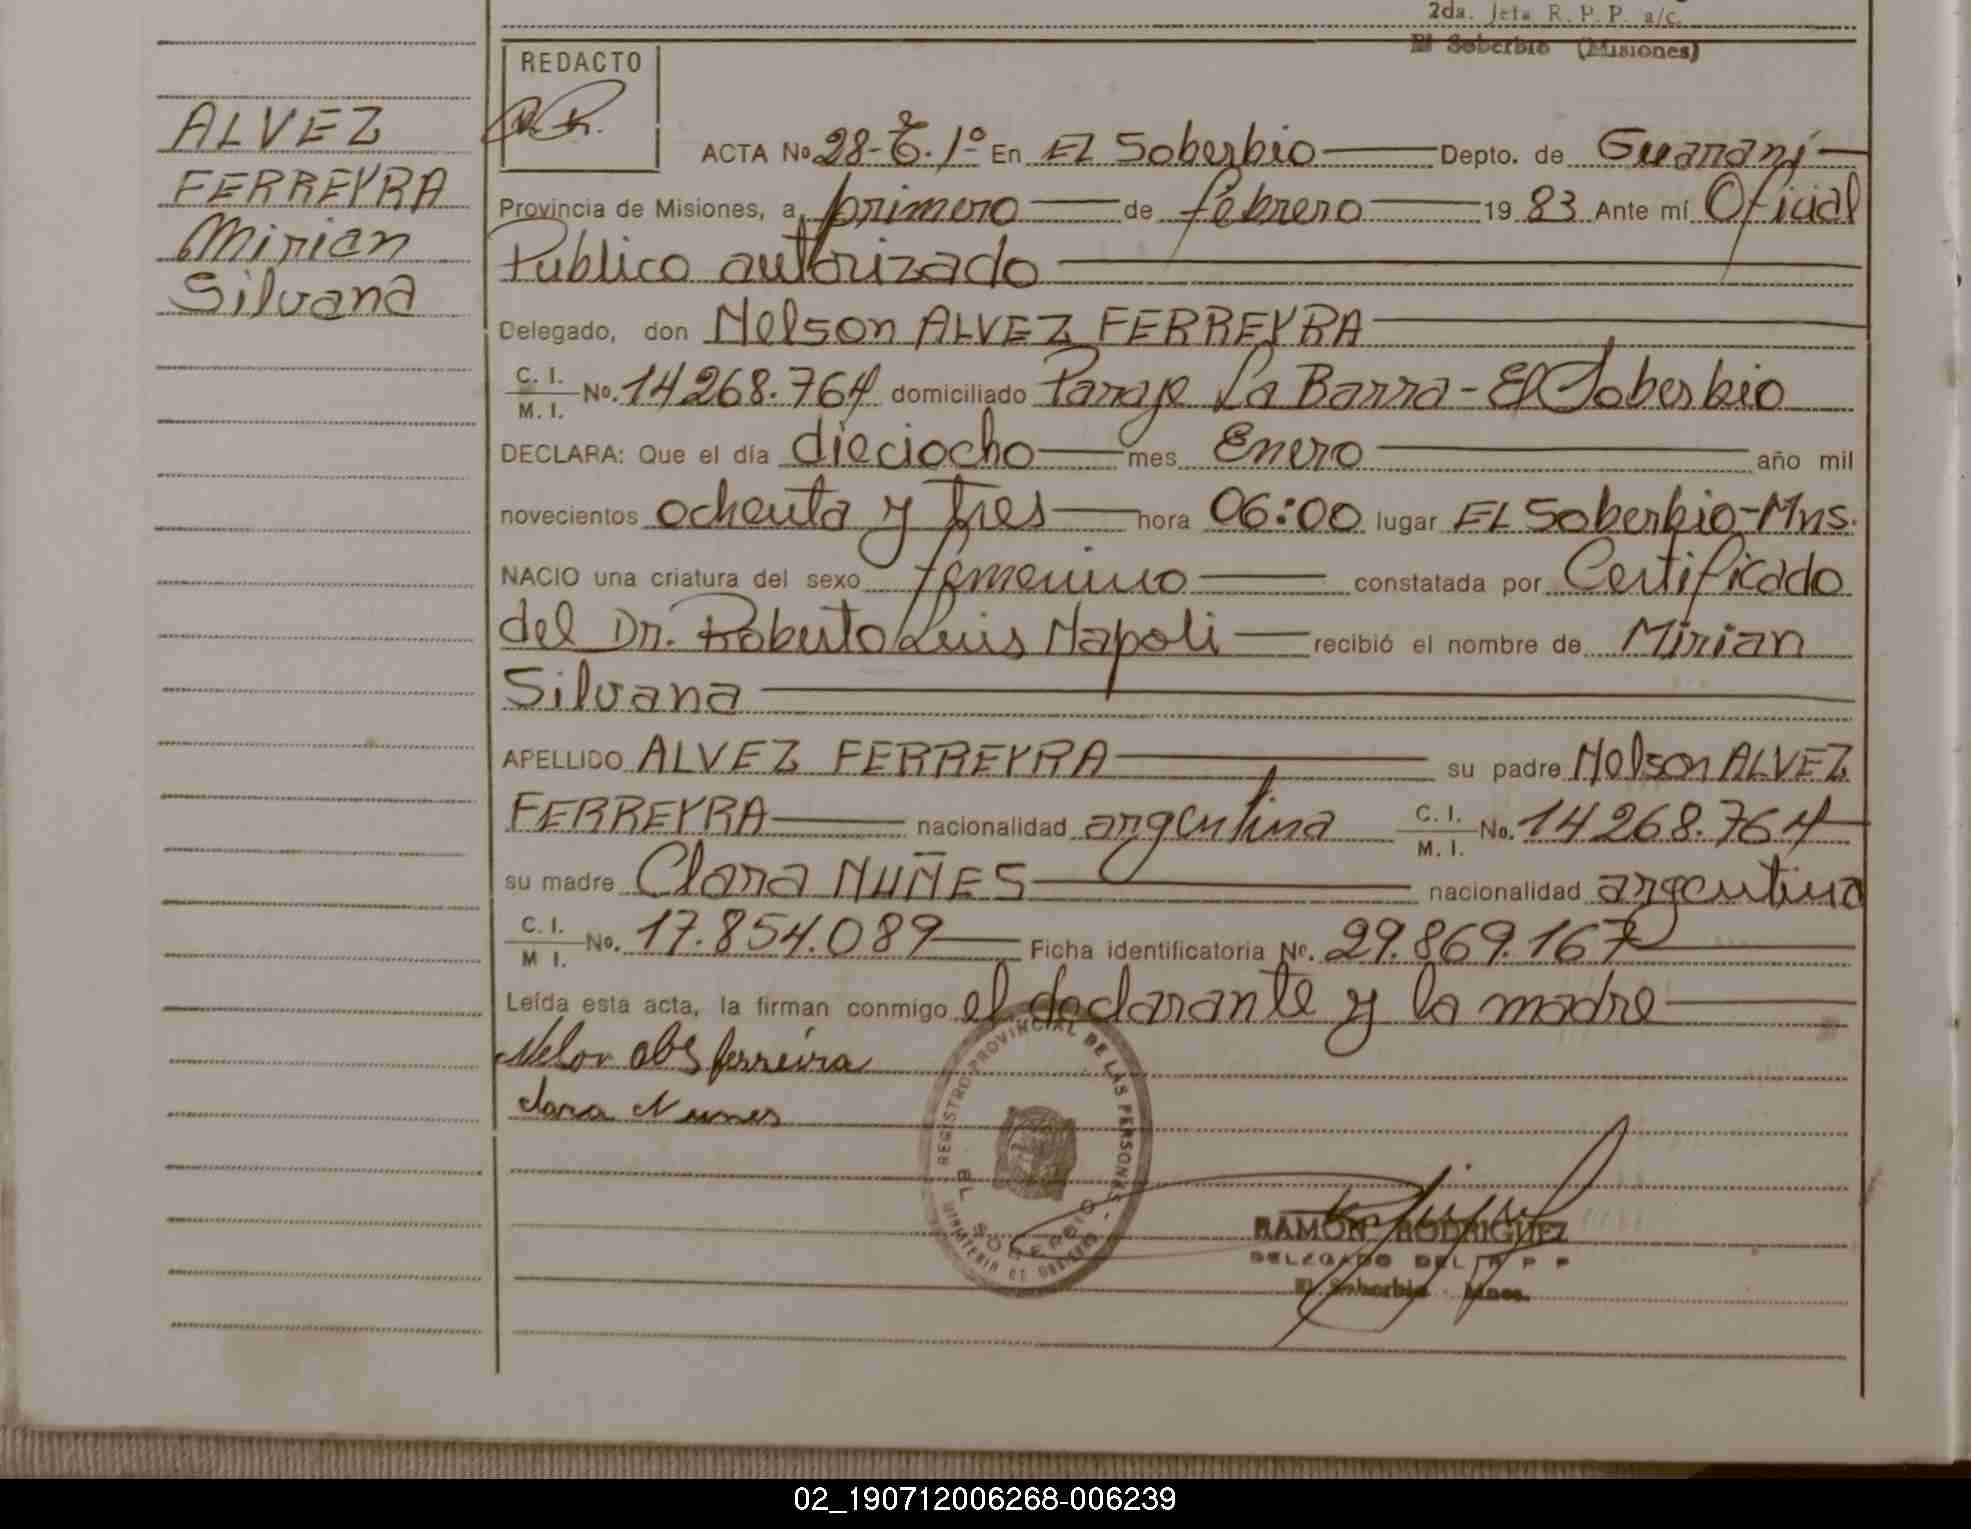 2da. Jefa R.P.P. a/c.
El Soberbio (Misiones)
REDACTO
ALVEZ
FERREYRA
Mirian
Silvana
ACTA No. 28-T.1º En EL Soberbio Depto. de Guaraní
Provincia de Misiones, a primero de febrero 19 83 Ante mí Oficial
Publico autorizado
Delegado, don Nelson ALVEZ FERREYRA
C. I. M. I. No. 14268.764 domiciliado Paraje La Barra - El Soberbio
DECLARA: Que el día dieciocho mes Enero año mil
novecientos ochenta y tres hora 06:00 lugar EL Soberbio-Mns.
NACIO una criatura del sexo femenino constatada por Certificado
del Dr. Roberto Luis Napoli recibió el nombre de Mirian
Silvana
APELLIDO ALVEZ FERREYRA su padre Nelson ALVEZ
FERREYRA nacionalidad argentina C. I. M. I. No. 14268.764
su madre Clara NUÑES nacionalidad argentina
C. I. M I. No. 17.854.089 Ficha identificatoria No. 29.869.167
Leída esta acta, la firman conmigo el declarante y la madre
Nelson ferreira
Clara Nunes
REGISTRO PROVINCIAL DE LAS PERSONAS
EL SOBERBIO
RAMON RODRIGUEZ
DELEGADO DEL R P P
El Soberbio Mnes.
02_190712006268-006239